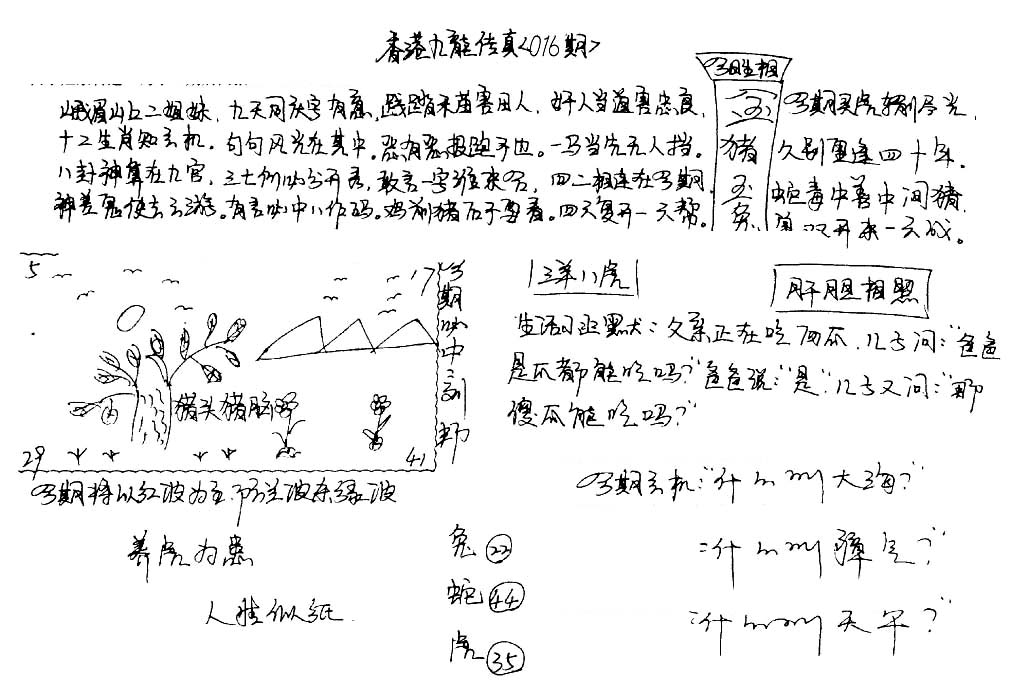 香港九龍传真<016期>
今期生相
峨眉山上二姐妹，九天同庆字有意，践踏禾苗害田人，奸人当道害忠良，
十二生肖知玄机，句句风光在其中。恶有恶报跑不也。一马当先无人挡。
八卦神算在九宫，三七例必今开看，敢言一字准来名，四二相连在今期，
神差鬼使去云游。有言必中八作码。鸡前猪后于要看。四天复开一天帮。
猪
兔
今期买虎输尽光，
久别重逢四十年。
蛇毒中善中间猪，
单双开来一云成。
5
17
29
41
猪头猪脑
今期必中三刮中
今期将以红波为主，防兰波杀绿波
三羊八虎
肝胆相照
生活幽默：父亲正在吃西瓜，儿子问："爸爸
是瓜都能吃吗？"爸爸说："是"，儿子又问："那
傻瓜能吃吗？"
今期玄机："什的叫大海？"
养虎为患
人生似纸
兔 22
蛇 44
虎 35